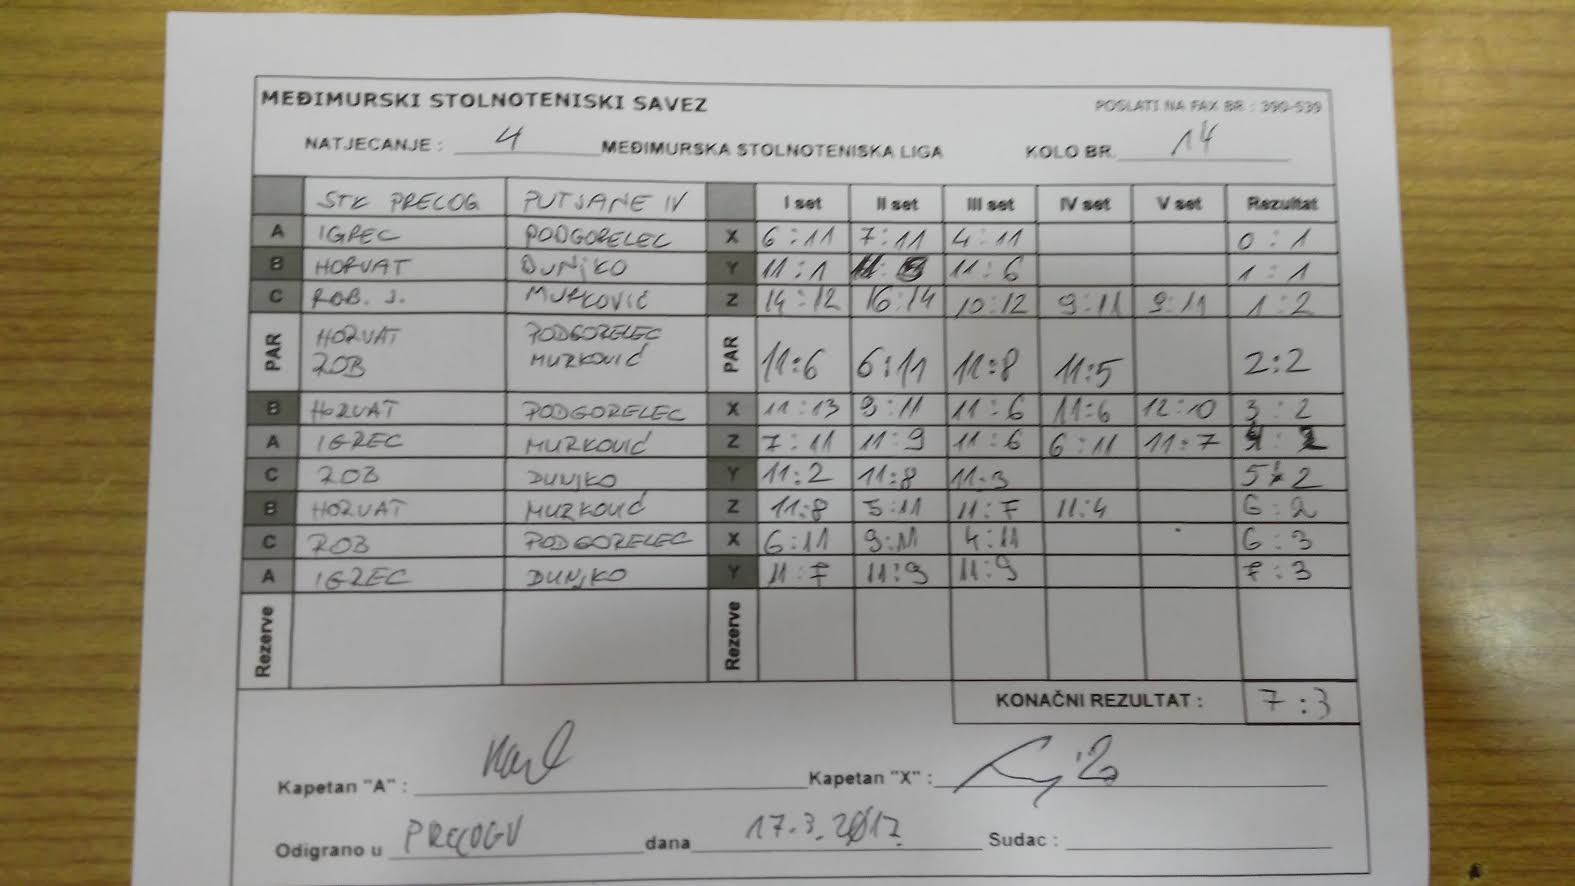 MEĐIMURSKI STOLNOTENISKI SAVEZ POSLATI NA FAX BR : 390-539
NATJECANJE : 4 MEĐIMURSKA STOLNOTENISKA LIGA KOLO BR. 14
STK PRELOG PUTJANE IV I set II set III set IV set V set Rezultat
A IGREC PODGORELEC X 6:11 7:11 4:11 0:1
B HORVAT DUNJKO Y 11:1 11: 11:6 1:1
C ROB. J. MURKOVIĆ Z 14:12 16:14 10:12 9:11 9:11 1:2
PAR HORVAT PODGORELEC PAR
ZOB MURKOVIĆ 11:6 6:11 11:8 11:5 2:2
B HORVAT PODGORELEC X 11:13 9:11 11:6 11:6 12:10 3:2
A IGREC MURKOVIĆ Z 7:11 11:9 11:6 6:11 11:7 : 2
C ZOB DUNJKO Y 11:2 11:8 11:3 5:2
B HORVAT MURKOVIĆ Z 11:8 5:11 11:7 11:4 6:2
C ROB PODGORELEC X 6:11 9:11 4:11 6:3
A IGREC DUNJKO Y 11:7 11:9 11:9 7:3
Rezerve Rezerve
KONAČNI REZULTAT : 7:3
Kapetan "A" : Kapetan "X" :
Odigrano u PRELOGU dana 17.3.2017. Sudac :